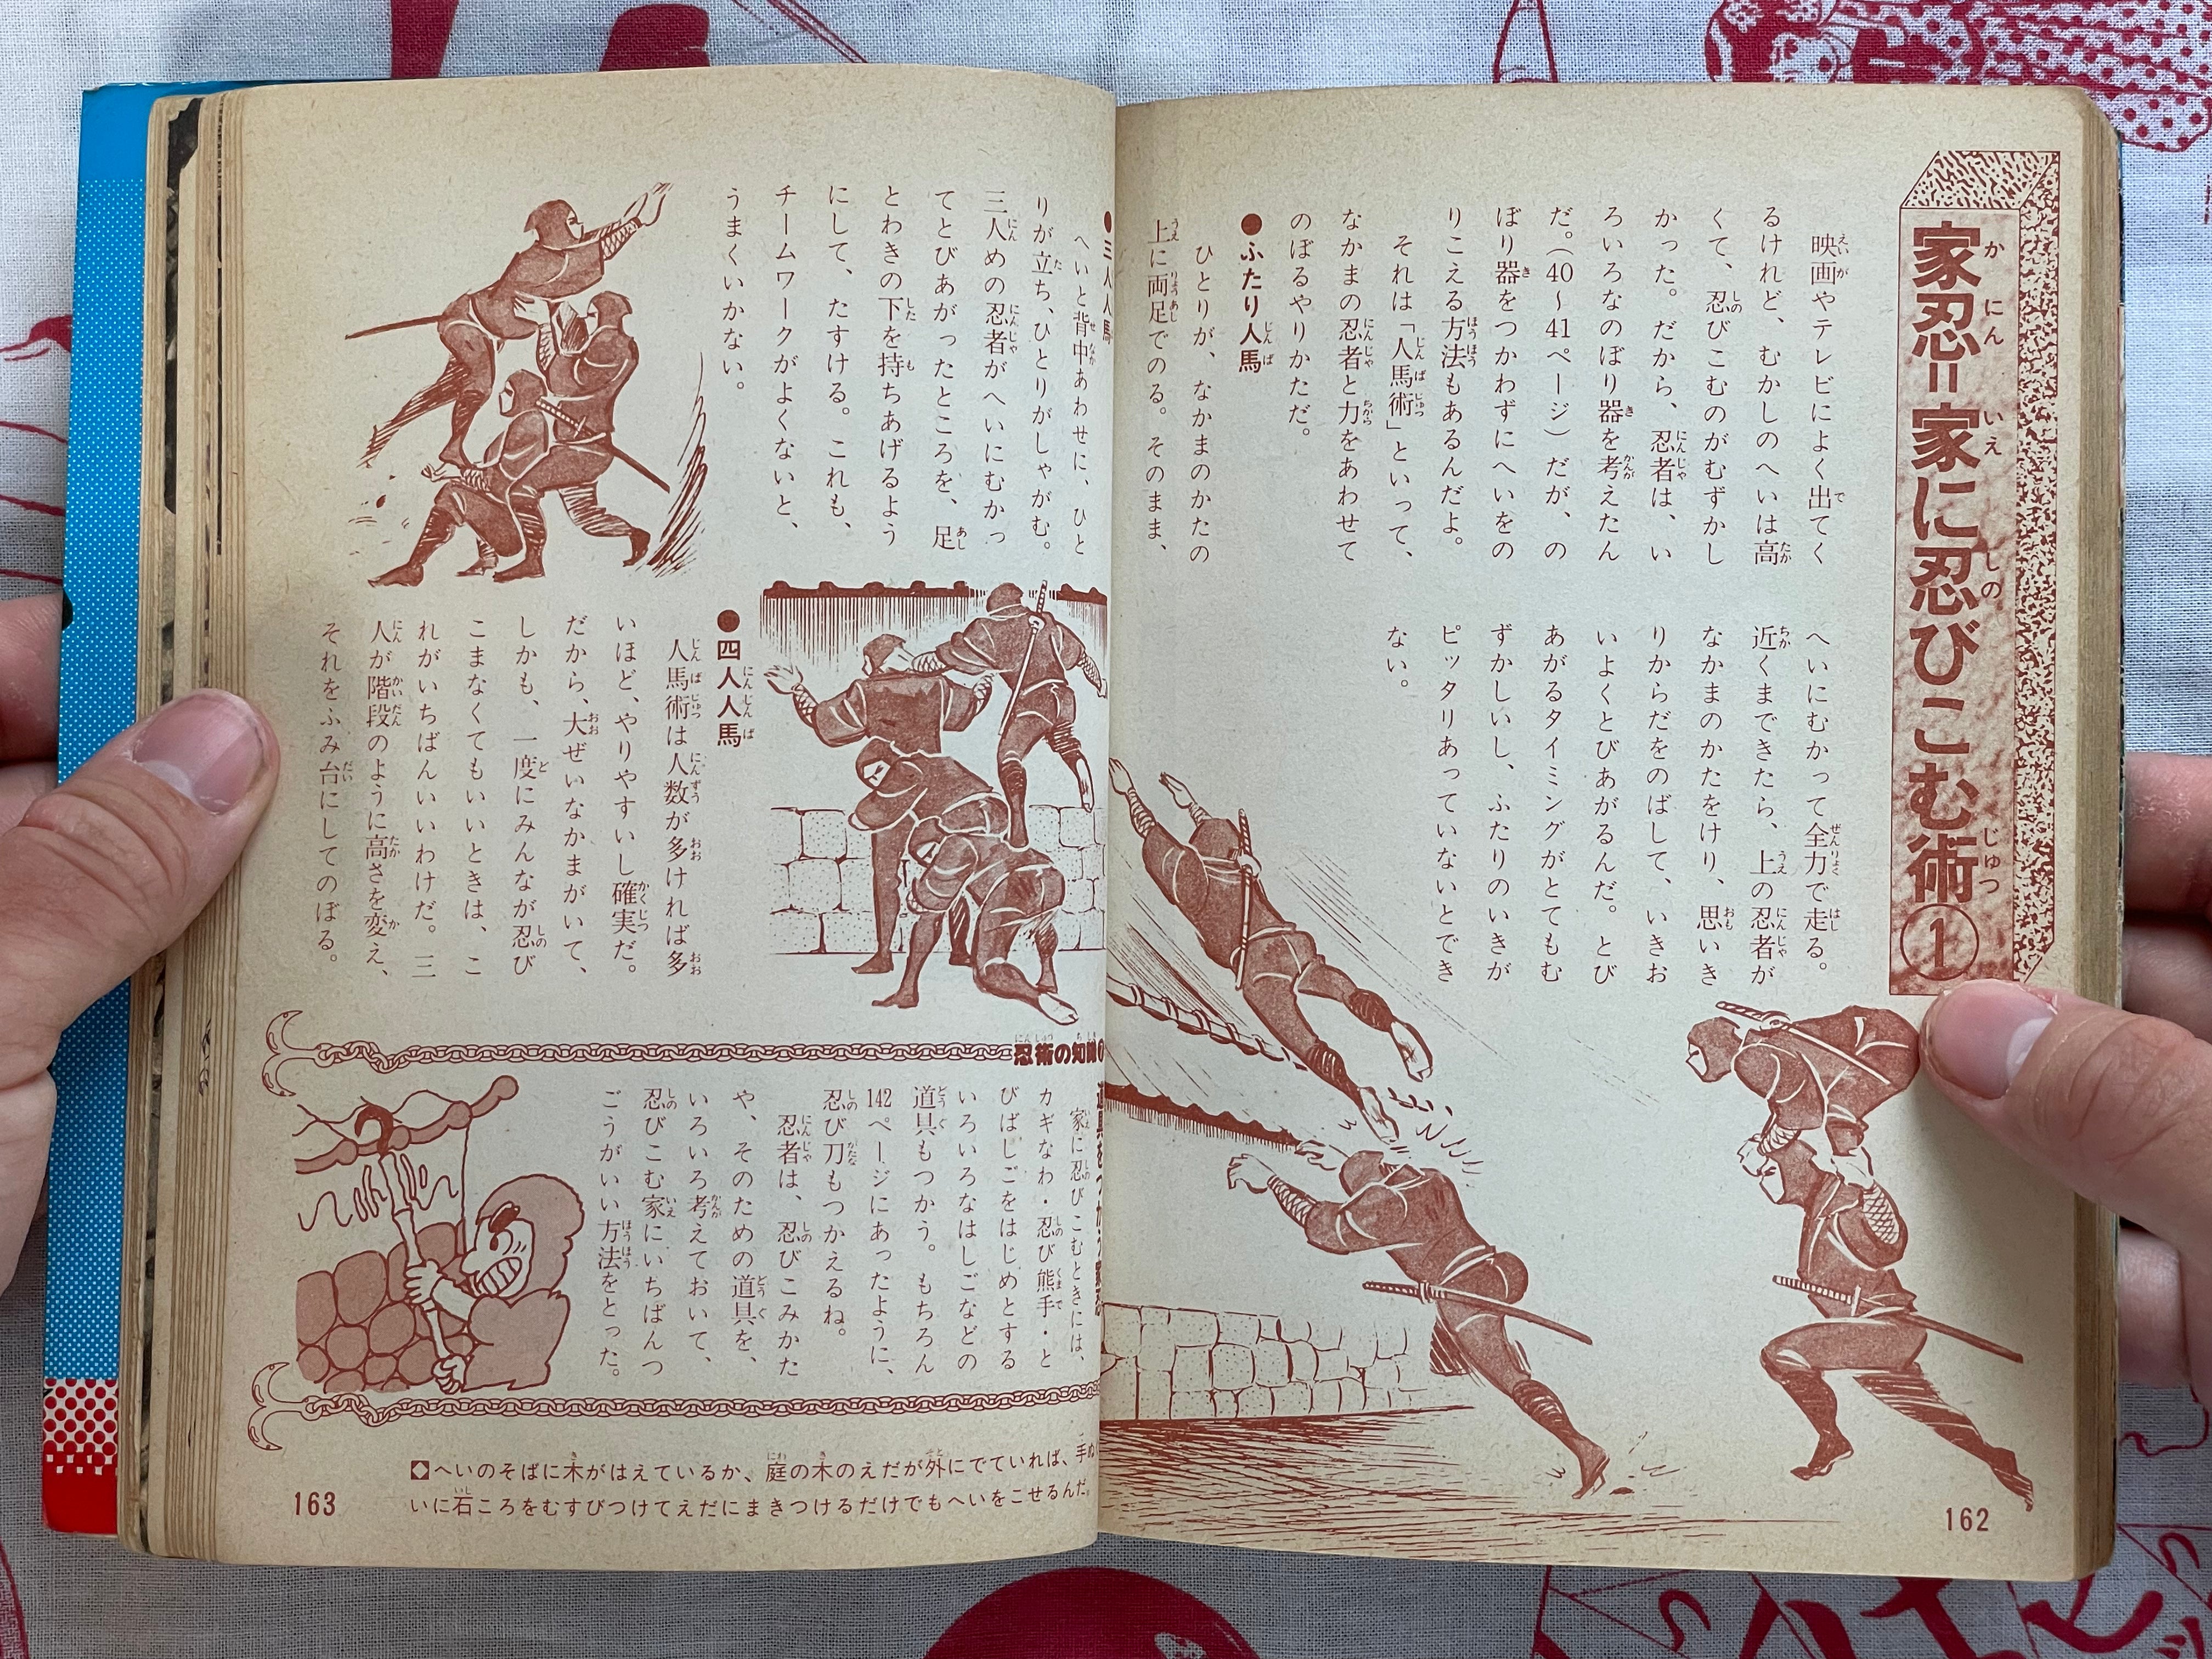 家忍=家に忍びこむ術①
映画やテレビによく出てく
るけれど、むかしのへいは高
くて、忍びこむのがむずかし
かった。だから、忍者は、い
ろいろなのぼり器を考えたん
だ。(40〜41ページ)だが、の
ぼり器をつかわずにへいをの
りこえる方法もあるんだよ。
それは「人馬術」といって、
なかまの忍者と力をあわせて
のぼるやりかただ。
●ふたり人馬
ひとりが、なかまのかたの
上に両足でのる。そのまま、
へいにむかって全力で走る。
近くまできたら、上の忍者が
なかまのかたをけり、思いき
りからだをのばして、いきお
いよくとびあがるんだ。とび
あがるタイミングがとてもむ
ずかしいし、ふたりのいきが
ピッタリあっていないとでき
ない。
162
●三人人馬
へいと背中あわせに、ひと
りが立ち、ひとりがしゃがむ。
三人めの忍者がへいにむかっ
てとびあがったところを、足
とわきの下を持ちあげるよう
にして、たすける。これも、
チームワークがよくないと、
うまくいかない。
●四人人馬
人馬術は人数が多ければ多
いほど、やりやすいし確実だ。
だから、大ぜいなかまがいて、
しかも、一度にみんなが忍び
こまなくてもいいときは、こ
れがいちばんいいわけだ。三
人が階段のように高さを変え、
それをふみ台にしてのぼる。
忍術の知識
道具をつかう家忍
家に忍びこむときには、
カギなわ・忍び熊手・と
びばしごをはじめとする
いろいろなはしごなどの
道具もつかう。もちろん
142ページにあったように、
忍び刀もつかえるね。
忍者は、忍びこみかた
や、そのための道具を、
いろいろ考えておいて、
忍びこむ家にいちばんつ
ごうがいい方法をとった。
◆へいのそばに木がはえているか、庭の木のえだが外にでていれば、手ぬ
いに石ころをむすびつけてえだにまきつけるだけでもへいをこせるんだ。
163